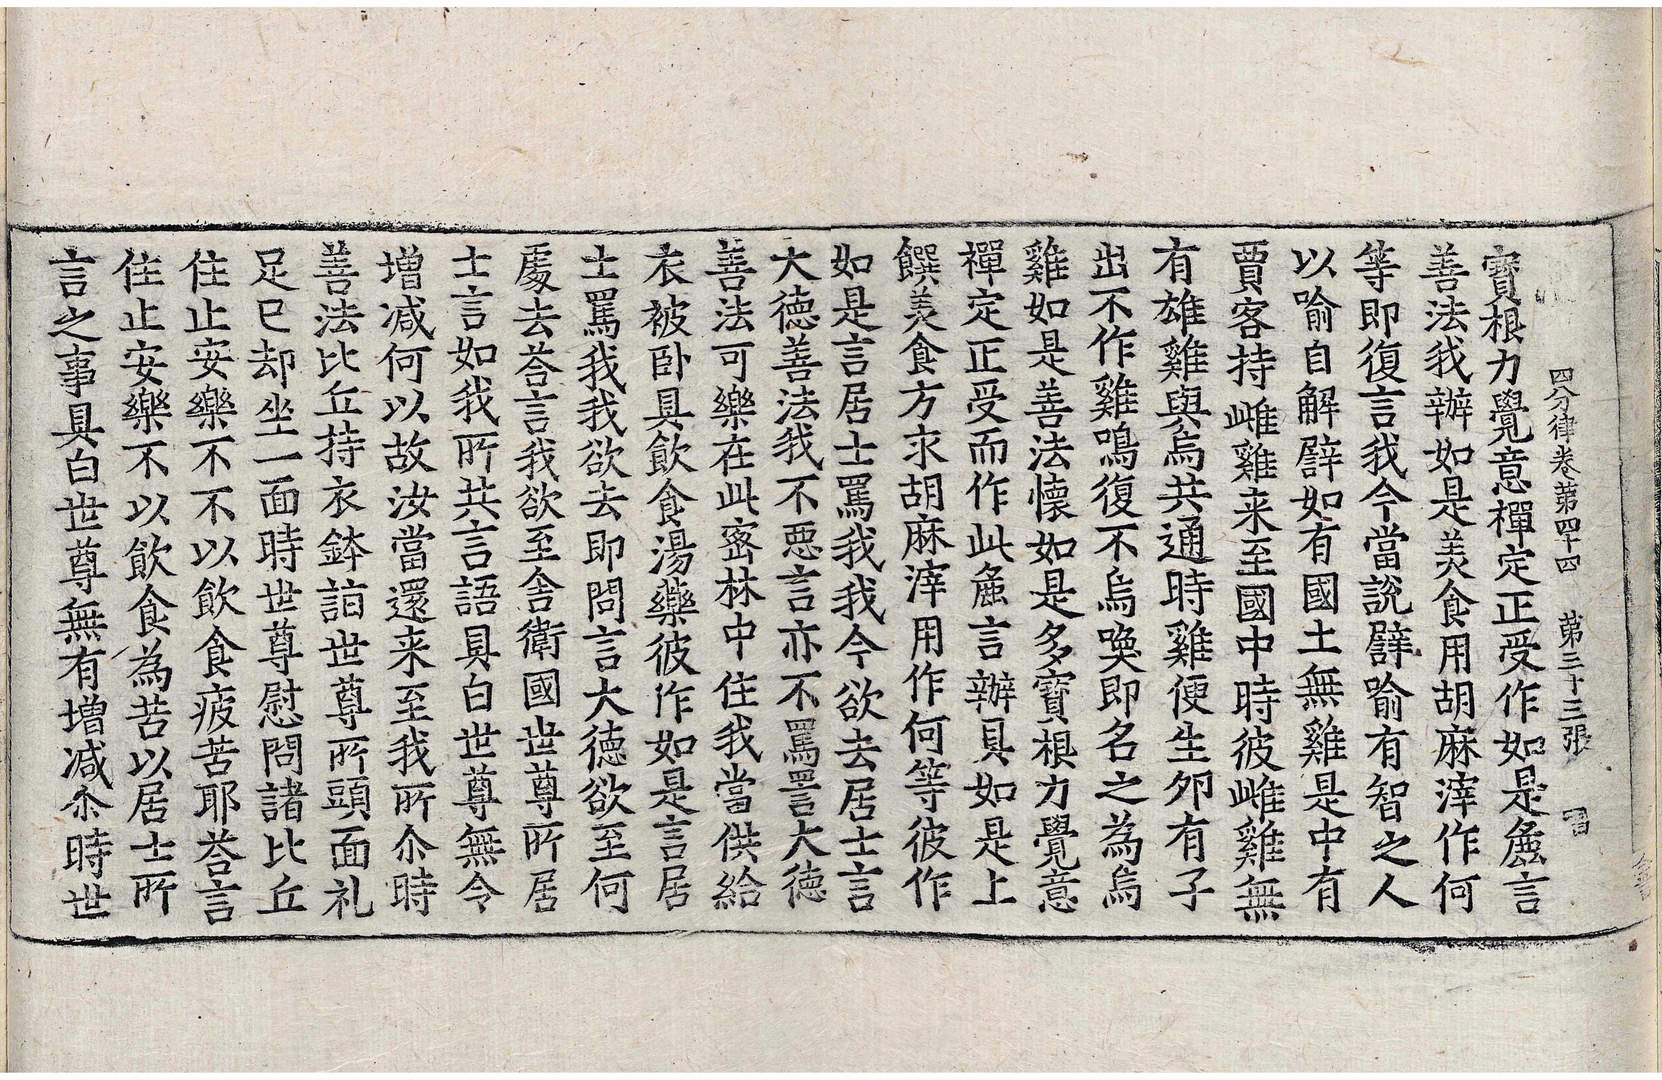 四分律卷第四十四 第三十三張
寶根力覺意禪定正受作如是麁言
善法我辦如是美食用胡麻滓作何
等即復言我今當說譬喻有智之人
以喻自解譬如有國土無雞是中有
賈客持雌雞来至國中時彼雌雞無
有雄雞與烏共通時雞便生夘有子
出不作雞鳴復不烏喚即名之為烏
雞如是善法懷如是多寶根力覺意
禪定正受而作此麁言辦具如是上
饌美食方求胡麻滓用作何等彼作
如是言居士罵我我今欲去居士言
大德善法我不惡言亦不罵詈大德
善法可樂在此宻林中住我當供給
衣被卧具飲食湯藥彼作如是言居
士罵我我欲去即問言大德欲至何
處去荅言我欲至舍衛國世尊所居
士言如我所共言語具白世尊無令
增减何以故汝當還来至我所尒時
善法比丘持衣鉢詣世尊所頭面礼
足已却坐一面時世尊慰問諸比丘
住止安樂不不以飲食疲苦耶荅言
住止安樂不以飲食為苦以居士所
言之事具白世尊無有增减尒時世